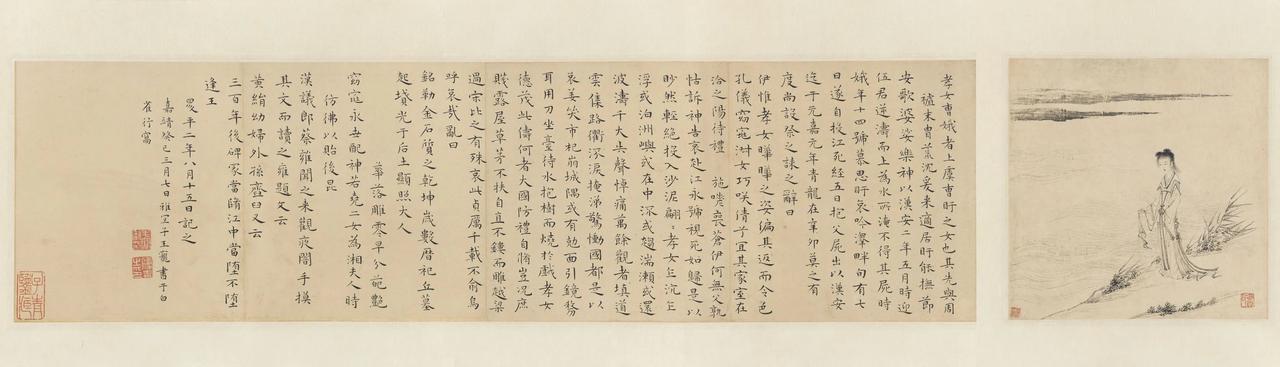 孝女曹娥者上虞曹盱之女也其先與周
末胄荒沈爰来適居盱能撫節
安歌婆娑樂神以漢安二年五月時迎
伍君逆濤而上為水所淹不得其屍時
娥年十四號慕思盱哀吟澤畔旬有七
日遂自投江死經五日抱父屍出以漢安
迄于元嘉元年青龍在辛卯莫之有
度尚設祭之誄之辭曰
伊惟孝女曄曄之姿偏其返而令色
孔儀窈窕淑女巧咲倩兮宜其家室在
洽之陽待禮 施嗟喪蒼伊何無父孰
怙訴神告哀赴江永號視死如歸是以
眇然輕絶投入沙泥翩〻孝女乍沉乍
浮或泊洲嶼或在中流或趨湍瀨或還
波濤千夫失聲悼痛萬餘觀者填道
雲集路衢泣淚掩涕驚慟國都是以
哀姜哭市杞崩城隅或有剋面引鏡剺
耳用刀坐臺待水抱樹而燒於戲孝女
德茂此儔何者大國防禮自脩豈況庶
賤露屋草茅不扶自直不鏤而雕越梁
過宋比之有殊哀此貞厲千載不渝烏
呼哀哉亂曰
銘勒金石質之乾坤歲數曆祀丘墓
起墳光于后土顯照夫人
落雕零早分葩艷
窈窕永世配神若堯二女為湘夫人時
仿佛以貽後昆
漢議郎蔡雍聞之来觀夜闇手摸
其文而讀之雍題文云
黄絹幼婦外孫虀臼又云
三百年後碑冢當墮江中當墮不墮
逢王
昪平二年八月十五日記之
嘉靖癸巳三月七日雅宜子王寵書于白
雀行窩